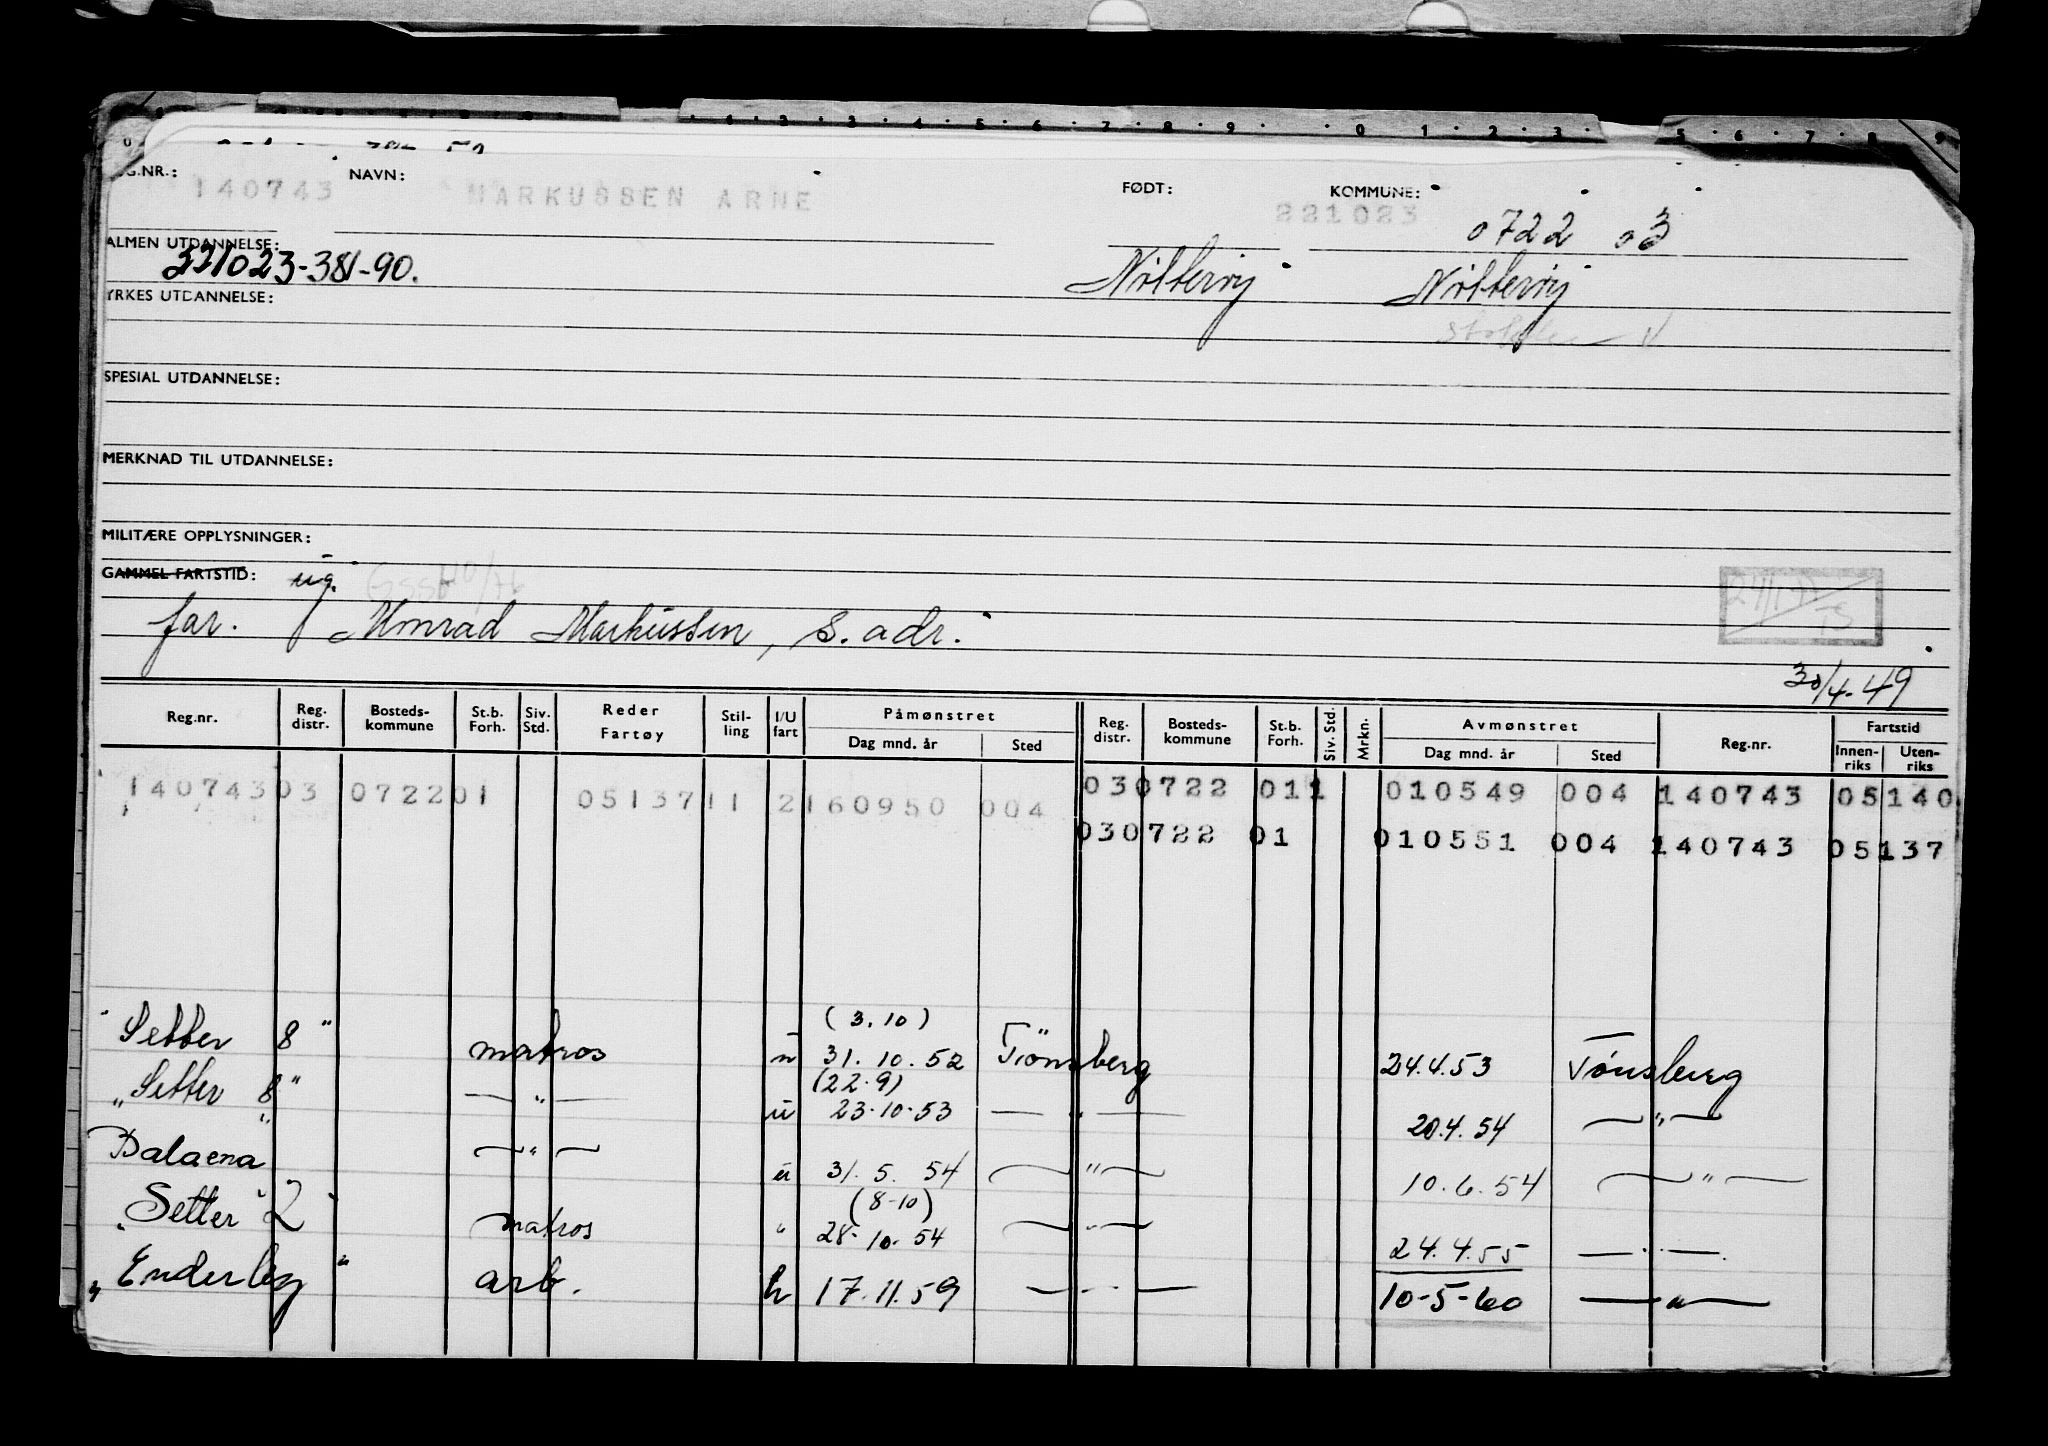 0 1 2 3 4 5 6 7 8 9 0 1 2 3 5 6 7 8 9
G.NR.: NAVN: FØDT: KOMMUNE:
140743 MARKUSSEN ARNE 221023 0722 03
ALMEN UTDANNELSE:
221023-381-90. Nøtterøy Nøtterøy
YRKES UTDANNELSE:
SPESIAL UTDANNELSE:
MERKNAD TIL UTDANNELSE:
MILITÆRE OPPLYSNINGER:
GAMMEL FARTSTID: ug.
far. Konrad Markussen, s. adr.
30/4-49
Reg.nr. Reg. distr. Bosteds-kommune St.b. Forh. Siv. Std. Reder Fartøy Stil-ling I/U fart Påmønstret Reg. distr. Bosteds-kommune St.b. Forh. Siv. Std. Mrkn. Avmønstret Reg.nr. Fartstid
Dag mnd. år Sted Dag mnd. år Sted Innen-riks Uten-riks
140743 03 0722 01 05137 11 2 160950 004 03 0722 01 1 010549 004 140743 05 140
03 0722 01 010551 004 140743 05 137
(3.10)
"Setter 8" matros u 31.10.52 Tönsberg 24.4.53 Tønsberg
(22.9)
"Setter 8" — " — u 23-10-53 — " — 20.4.54 — " —
Balaena — " — u 31.5.54 — " — 10.6.54 — " —
(8-10)
"Setter 2" matros " 28-10-54 — " — 24.4.55 — " —
"Enderby" arb. h 17.11.59 — " — 10-5-60 — " —